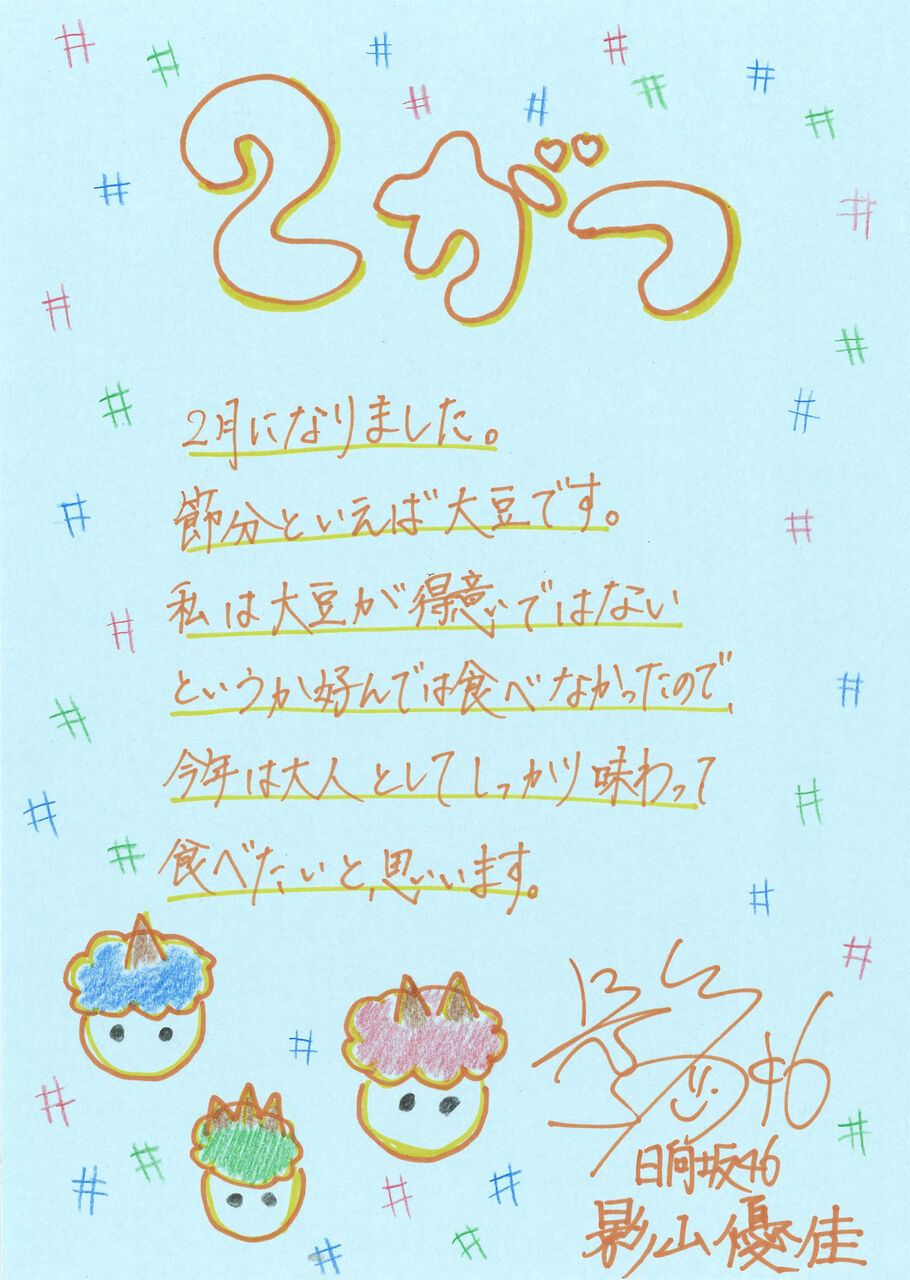 2がつ
2月になりました。
節分といえば大豆です。
私は大豆が得意ではない
というか好んでは食べなかったので、
今年は大人としてしっかり味わって
食べたいと思います。
日向坂46
影山優佳